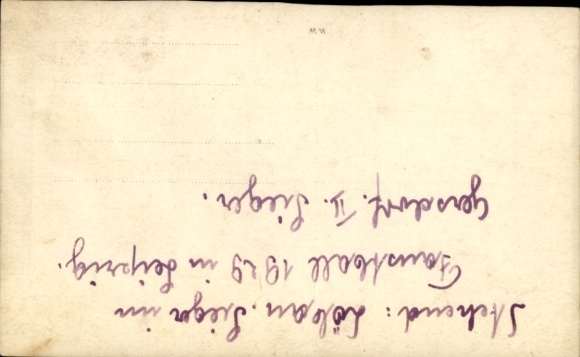 Stehend: Löbau. Sieger im
Faustball 1929 in Leipzig.
Gersdorf. II. Sieger.